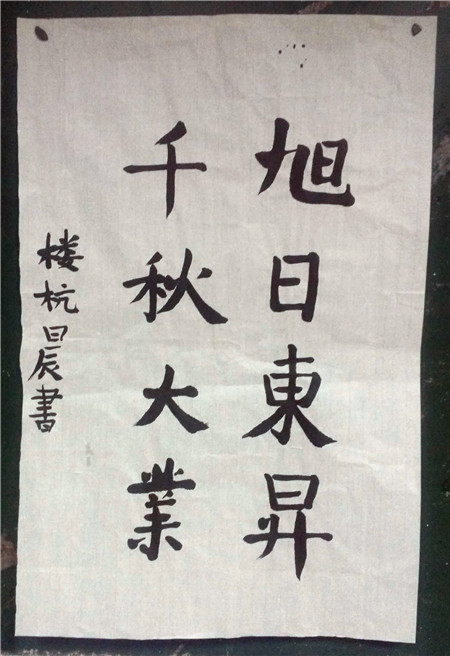 旭日東昇
千秋大業
楼杭晨書